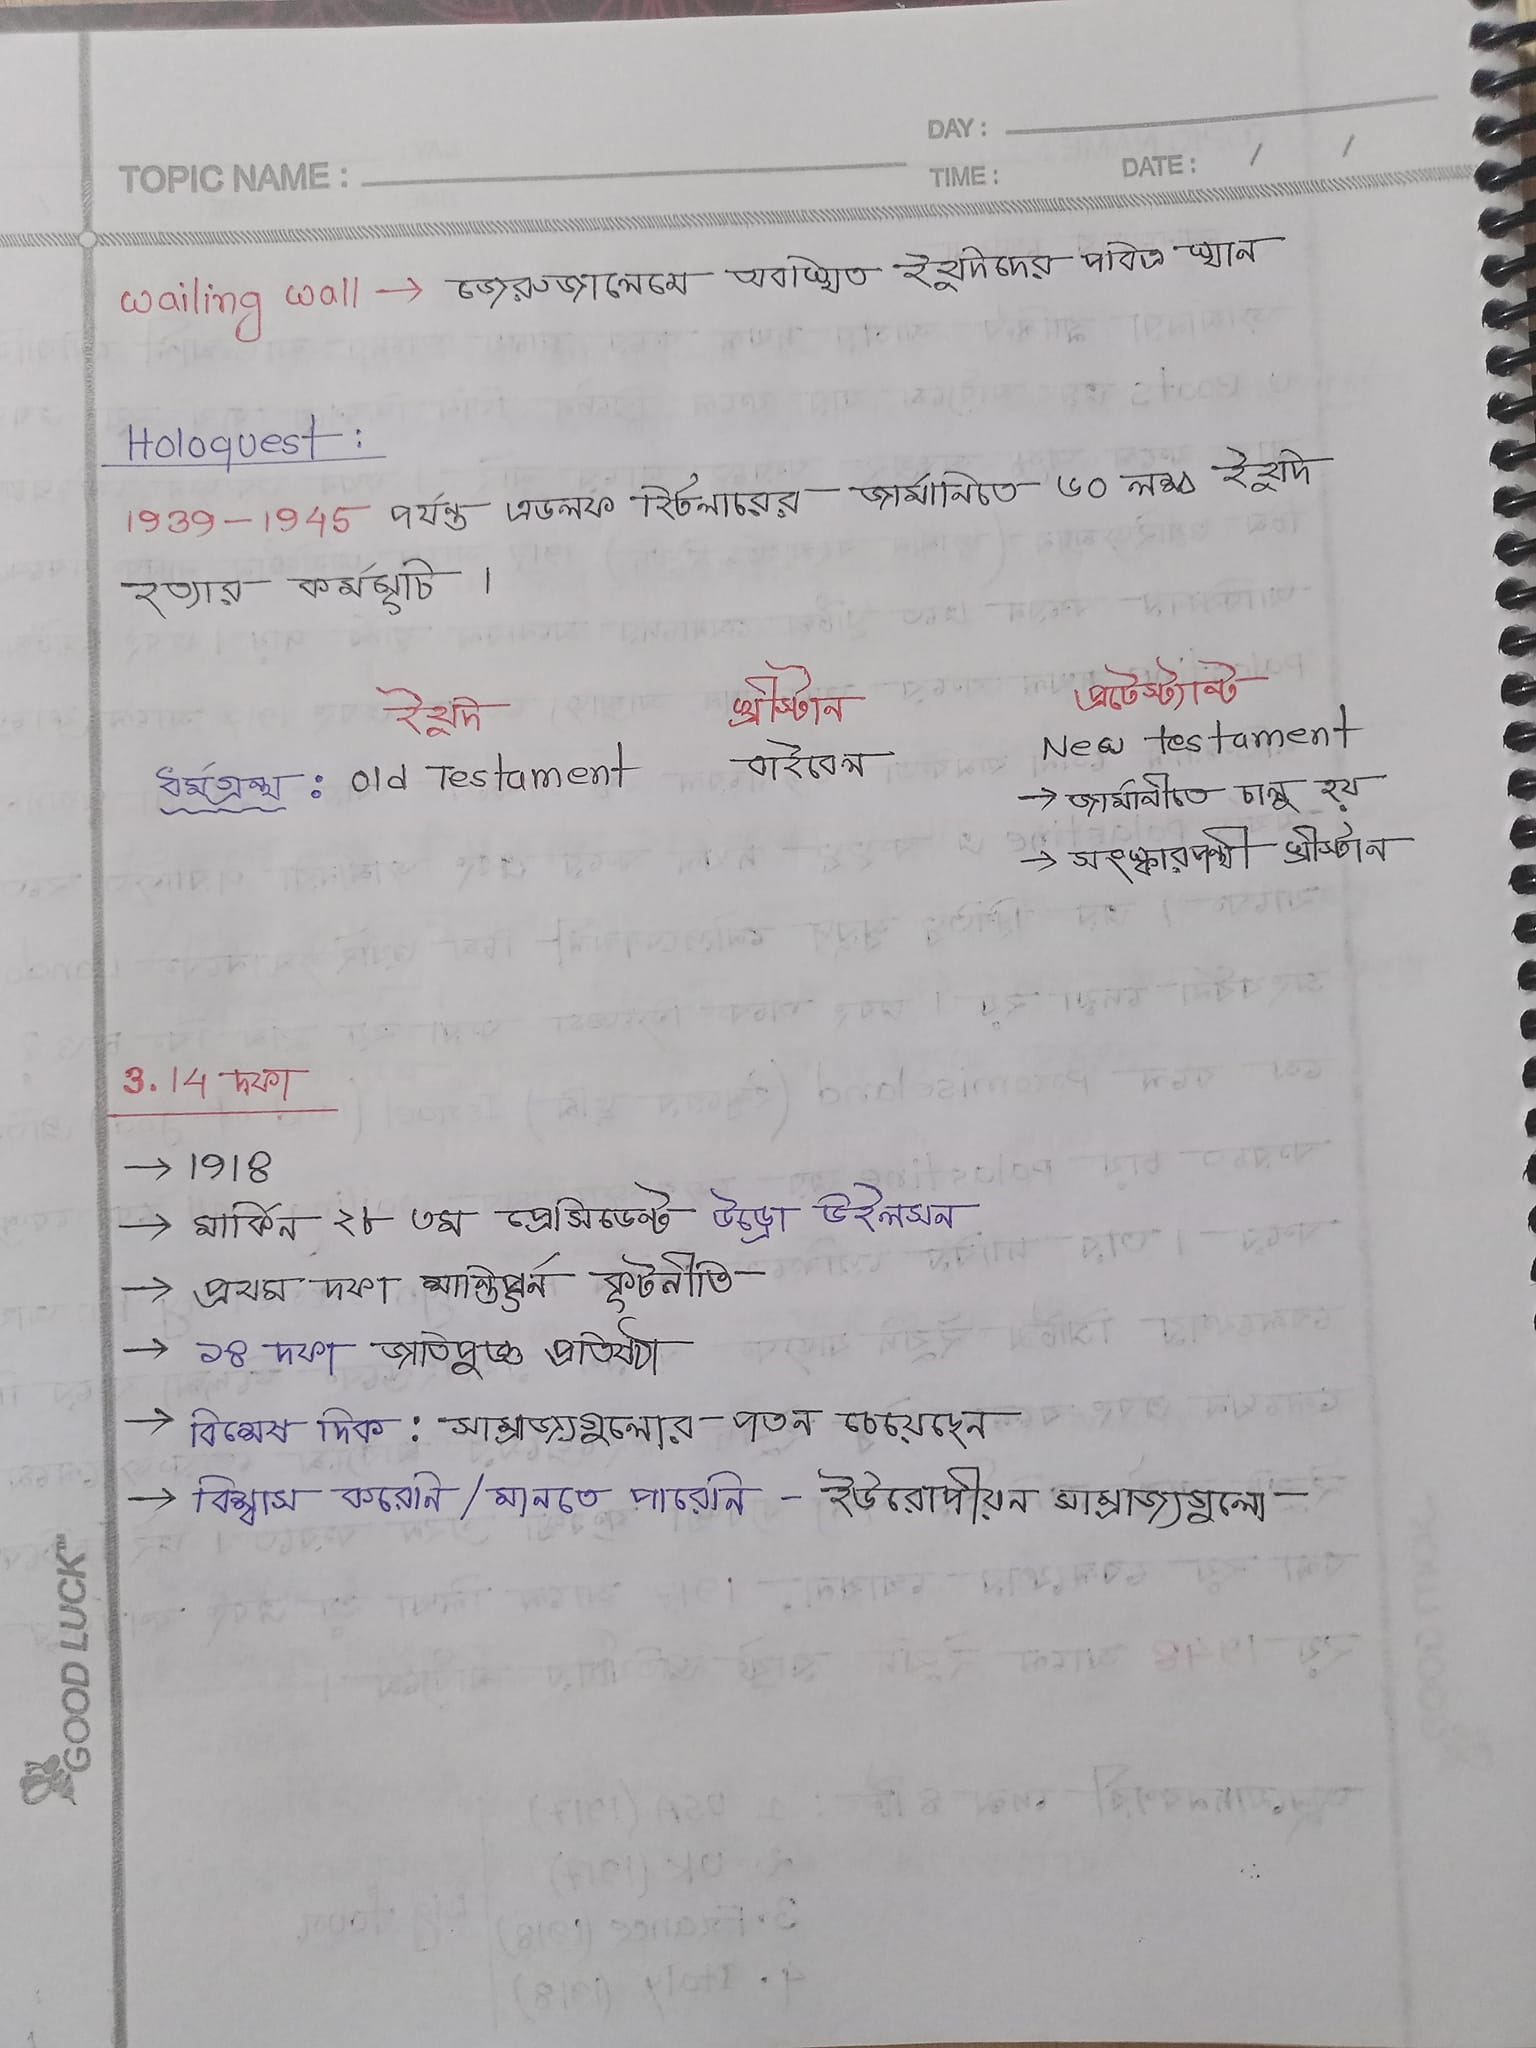 DAY :
TOPIC NAME :
TIME : DATE : / /
wailing wall → জেরুজালেমে অবস্থিত ইহুদিদের পবিত্র স্থান
Holoquest :
1939-1945 পর্যন্ত এডলফ হিটলারের জার্মানিতে ৬০ লক্ষ ইহুদি
হত্যার কর্মসূচি ।
ইহুদি খ্রীস্টান প্রটেস্ট্যান্ট
ধর্মগ্রন্থ : Old Testament বাইবেল New testament
→ জার্মানীতে চালু হয়
→ সংস্কারপন্থী খ্রীস্টান
3. 14 দফা
→ 1918
→ মার্কিন ২৮ তম প্রেসিডেন্ট উড্রো উইলসন
→ প্রথম দফা শান্তিপূর্ন কূটনীতি
→ ১৪ দফা জাতিপুঞ্জ প্রতিষ্ঠা
→ বিশেষ দিক : সাম্রাজ্যগুলোর পতন চেয়েছেন
→ বিশ্বাস করেনি / মানতে পারেনি - ইউরোপীয়ন সাম্রাজ্যগুলো
GOOD LUCK